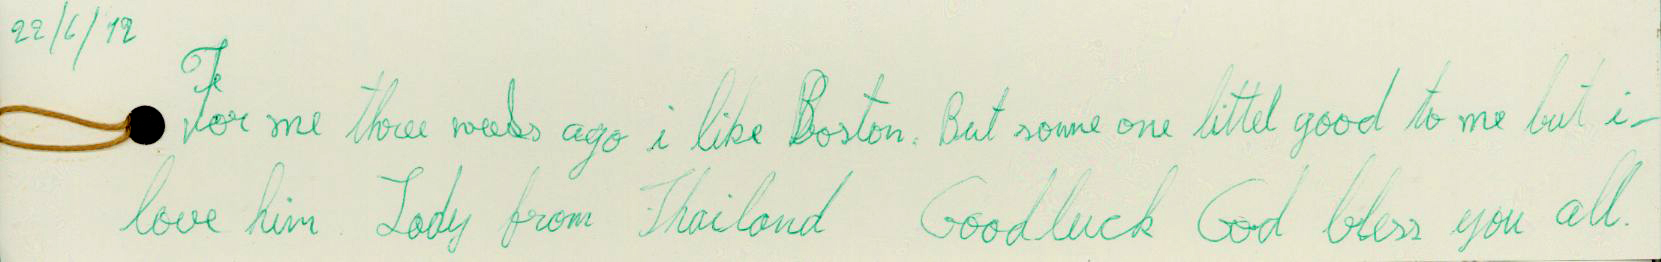 22/6/12
For me three weeks ago i like Boston. But somne one littel good to me but i-
love him. Lady from Thailand Goodluck God bless you all.